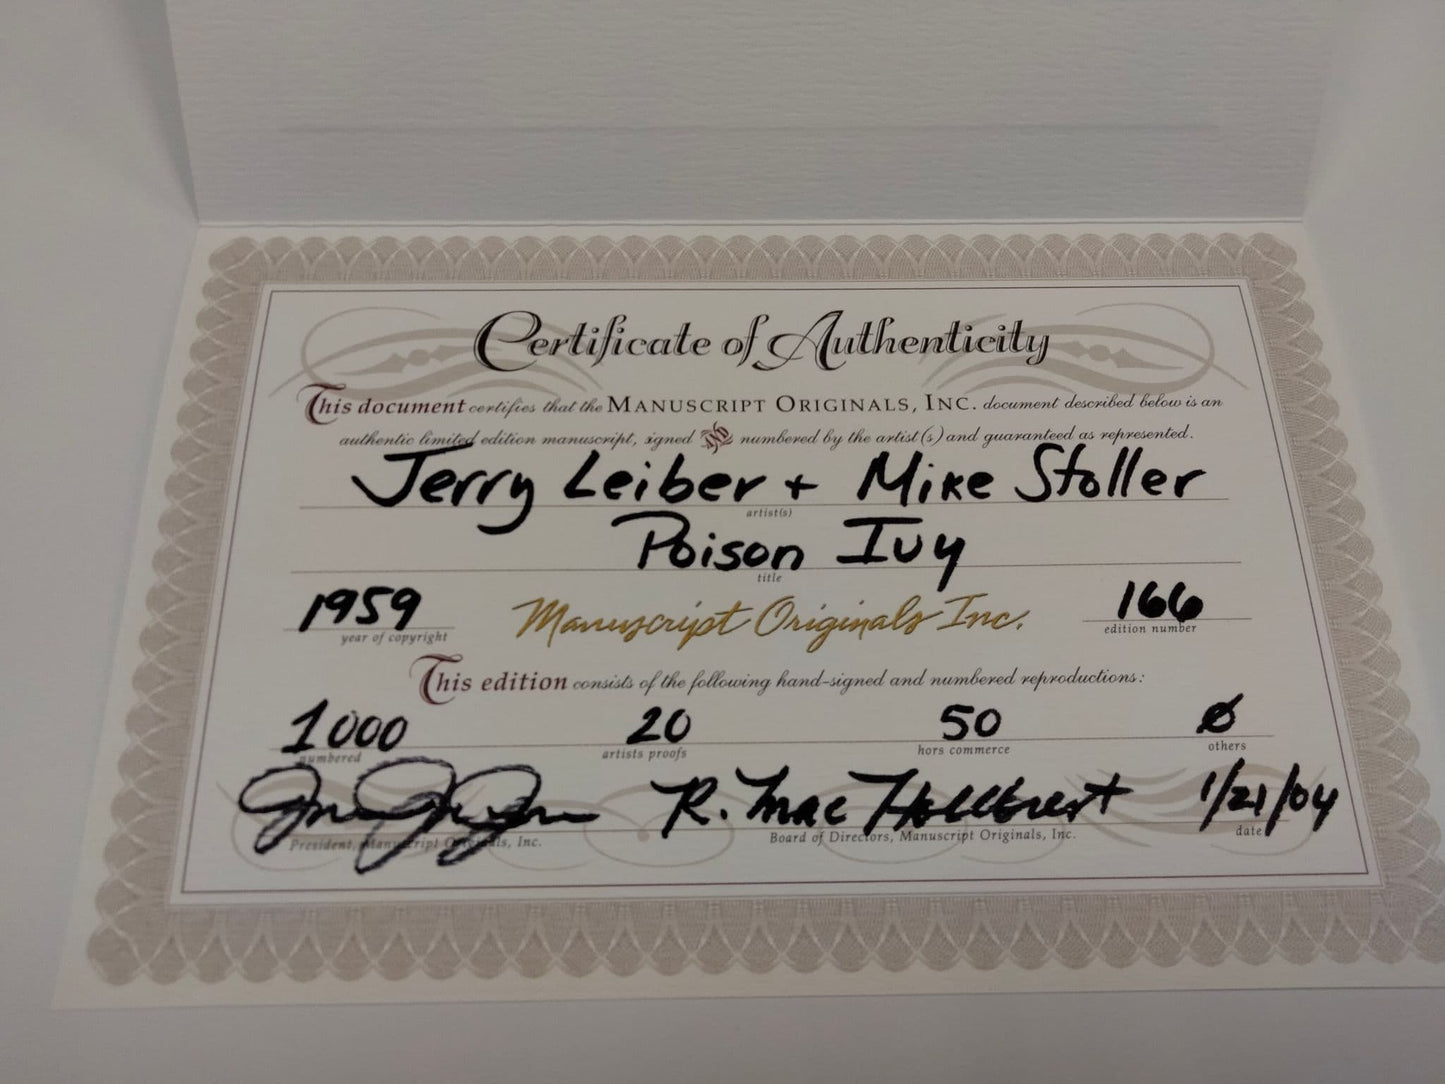 Certificate of Authenticity
This document certifies that the MANUSCRIPT ORIGINALS, INC. document described below is an
authentic limited edition manuscript, signed AND numbered by the artist(s) and guaranteed as represented.
Jerry Leiber + Mike Stoller
artist(s)
Poison Ivy
title
1959 Manuscript Originals Inc. 166
year of copyright edition number
This edition consists of the following hand-signed and numbered reproductions:
1000 20 50 Ø
numbered artists proofs hors commerce others
R. Mac 1/21/04
President, Manuscript Originals, Inc. Board of Directors, Manuscript Originals, Inc. date